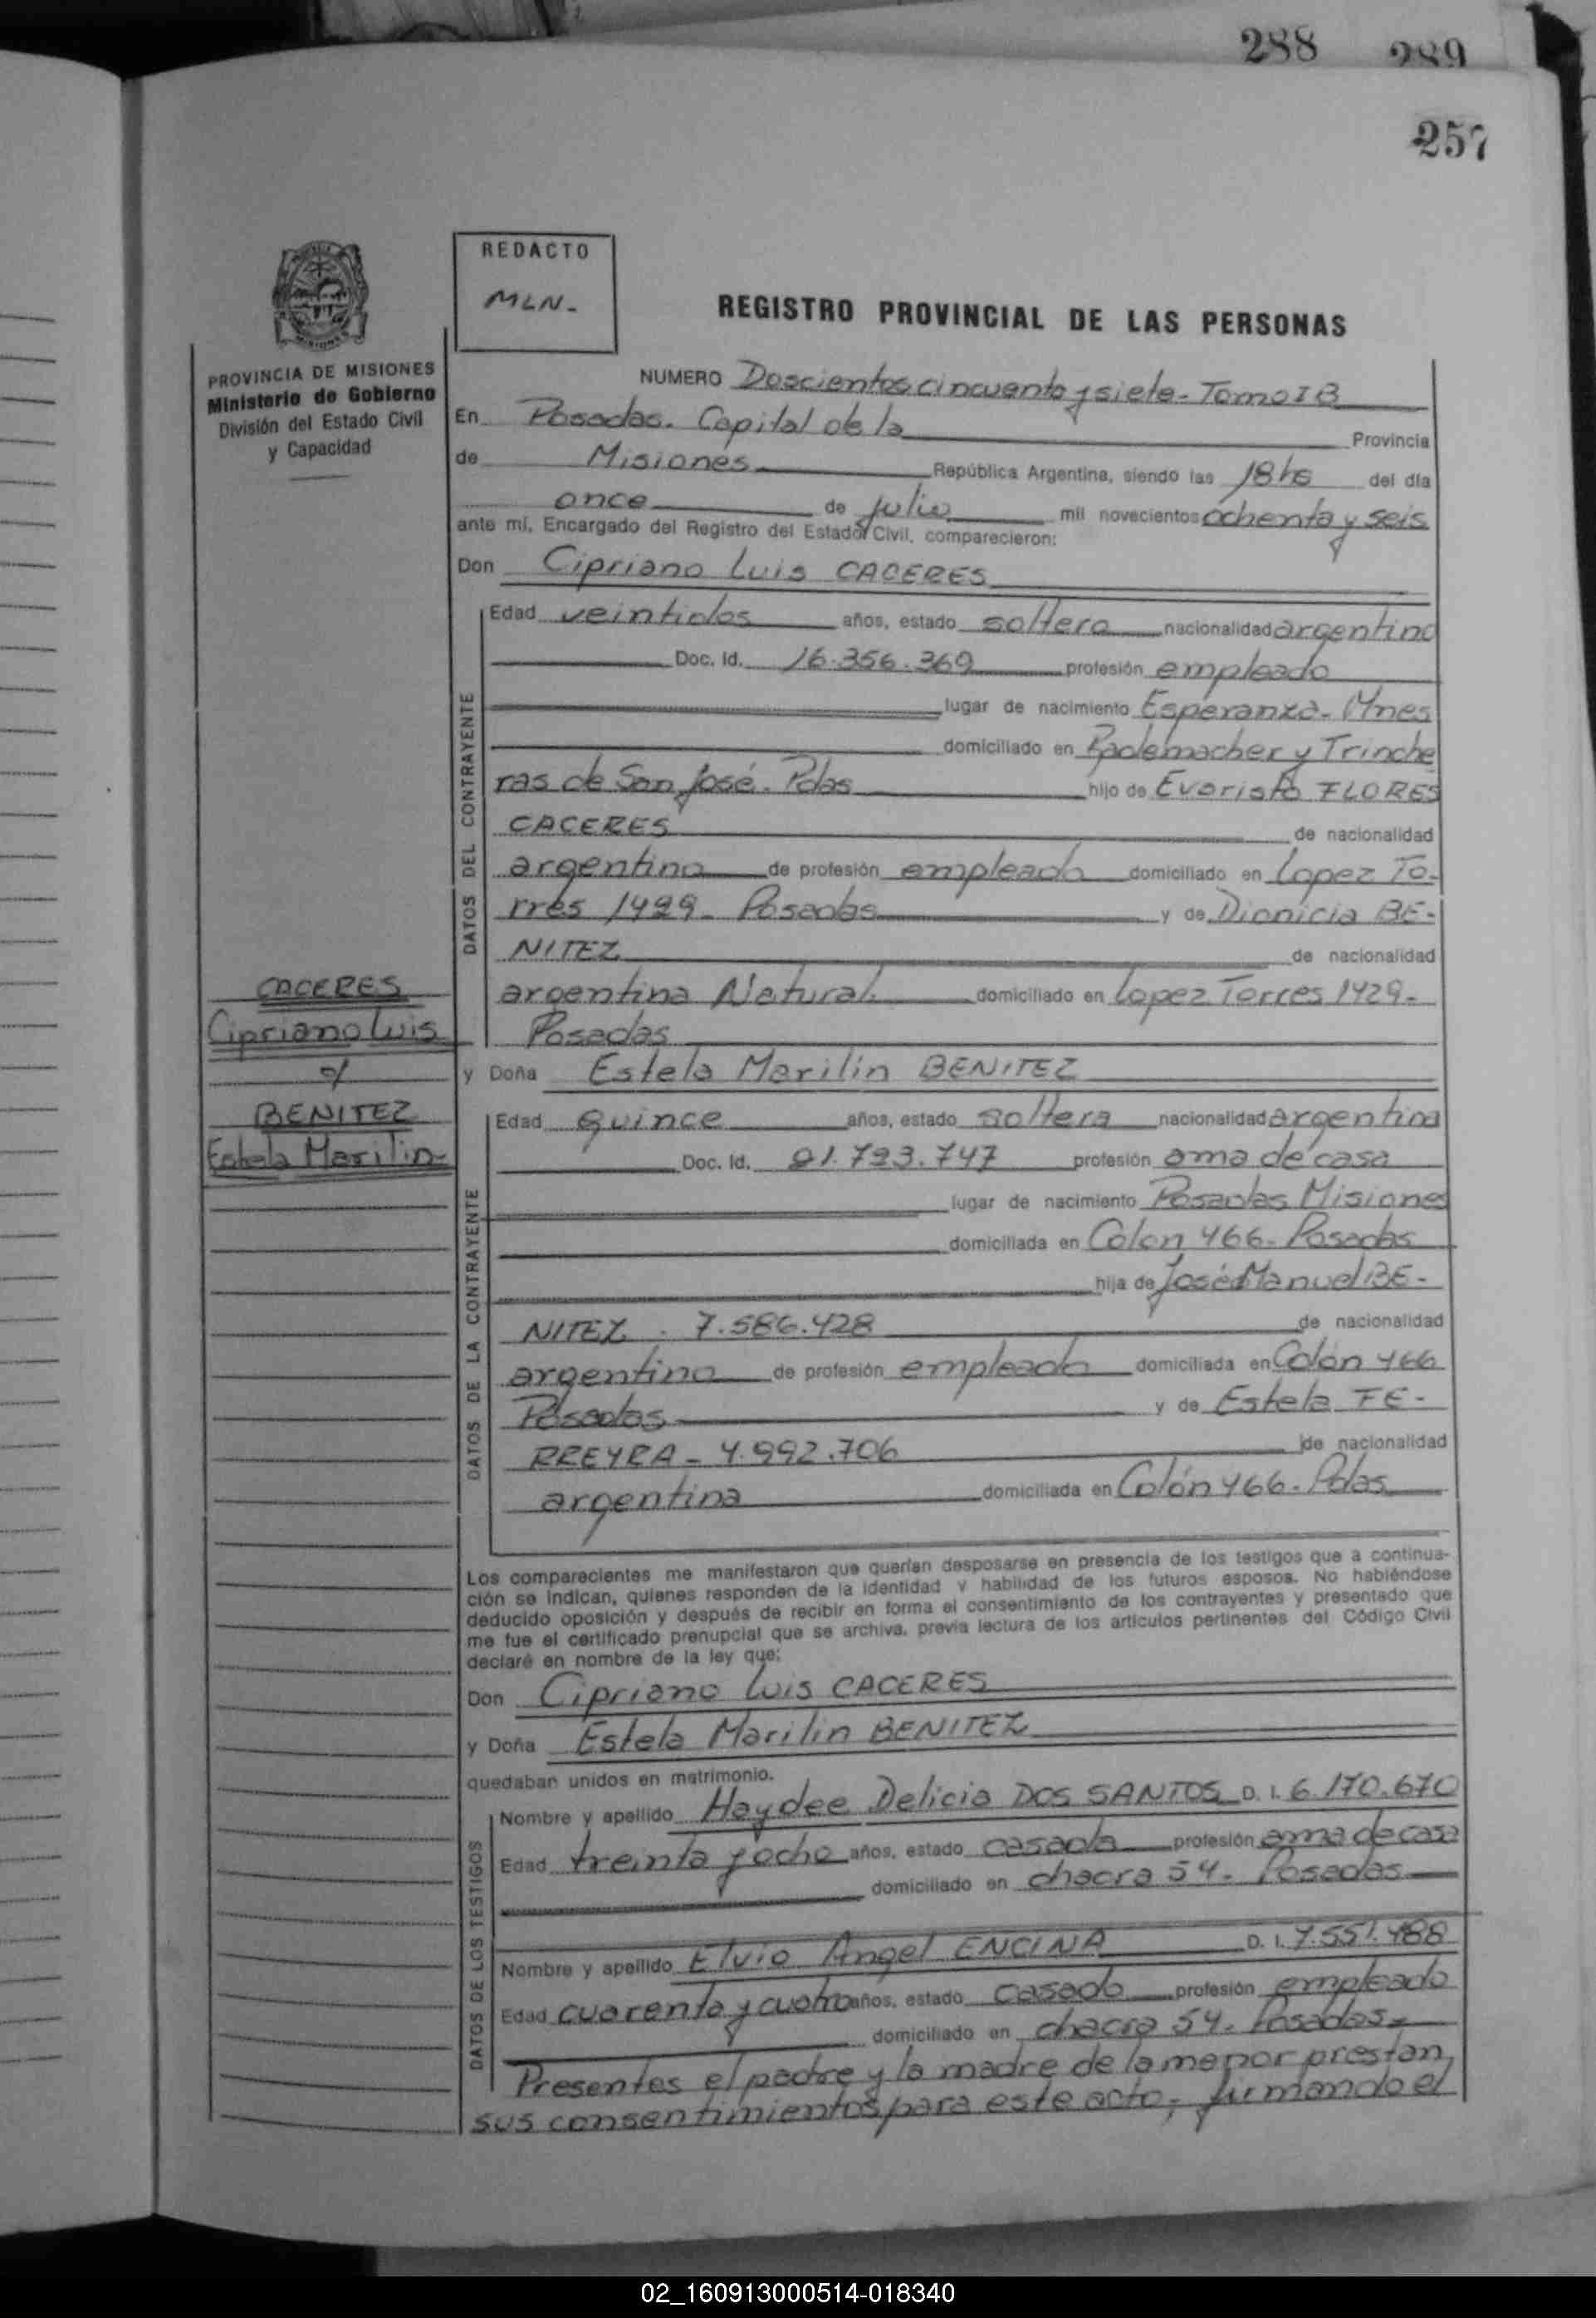 288 289
257
REDACTO
MLN-
REGISTRO PROVINCIAL DE LAS PERSONAS
PROVINCIA DE MISIONES
Ministerio de Gobierno
División del Estado Civil
y Capacidad
NUMERO Doscientos cincuenta y siete- Tomo I B
En Posadas. Capital de la Provincia
de Misiones República Argentina, siendo las 18 hs del día
once de julio mil novecientos ochenta y seis
ante mí, Encargado del Registro del Estado Civil, comparecieron:
Don Cipriano Luis CACERES
Edad veintidos años, estado soltero nacionalidad argentino
Doc. Id. 16.356.369 profesión empleado
lugar de nacimiento Esperanza- Mnes
domiciliado en Rademacher y Trinche
ras de San José. Pdas hijo de Evaristo FLORES
CACERES de nacionalidad
argentino de profesión empleado domiciliado en Lopez To-
rres 1429- Posadas y de Dionicia BE-
NITEZ de nacionalidad
argentina Natural. domiciliado en Lopez Torres 1429-
Posadas
CACERES
Cipriano Luis
c/
BENITEZ
Estela Marilin-
y Doña Estela Marilin BENITEZ
Edad quince años, estado soltera nacionalidad argentina
Doc. Id. 21.723.747 profesión ama de casa
lugar de nacimiento Posadas Misiones
domiciliada en Colon 466- Posadas
hija de José Manuel BE-
NITEZ - 7.586.428 de nacionalidad
argentino de profesión empleado domiciliada en Colón 466
Posadas y de Estela FE-
RREYRA - 4.992.706 de nacionalidad
argentina domiciliada en Colón 466- Pdas
DATOS DEL CONTRAYENTE
DATOS DE LA CONTRAYENTE
Los comparecientes me manifestaron que querían desposarse en presencia de los testigos que a continua-
ción se indican, quienes responden de la identidad y habilidad de los futuros esposos. No habiéndose
deducido oposición y después de recibir en forma el consentimiento de los contrayentes y presentado que
me fue el certificado prenupcial que se archiva, previa lectura de los artículos pertinentes del Código Civil
declaré en nombre de la ley que:
Don Cipriano Luis CACERES
y Doña Estela Marilin BENITEZ
quedaban unidos en matrimonio.
Nombre y apellido Haydee Delicia DOS SANTOS D. I. 6.170.670
Edad treinta y ocho años, estado casada profesión ama de casa
domiciliado en chacra 54- Posadas
Nombre y apellido Elvio Angel ENCINA D. I. 7.551.488
Edad cuarenta y cuatro años, estado casado profesión empleado
domiciliado en chacra 54- Posadas-
DATOS DE LOS TESTIGOS
Presentes el padre y la madre de la menor prestan
sus consentimientos para este acto, firmando el
02_160913000514-018340